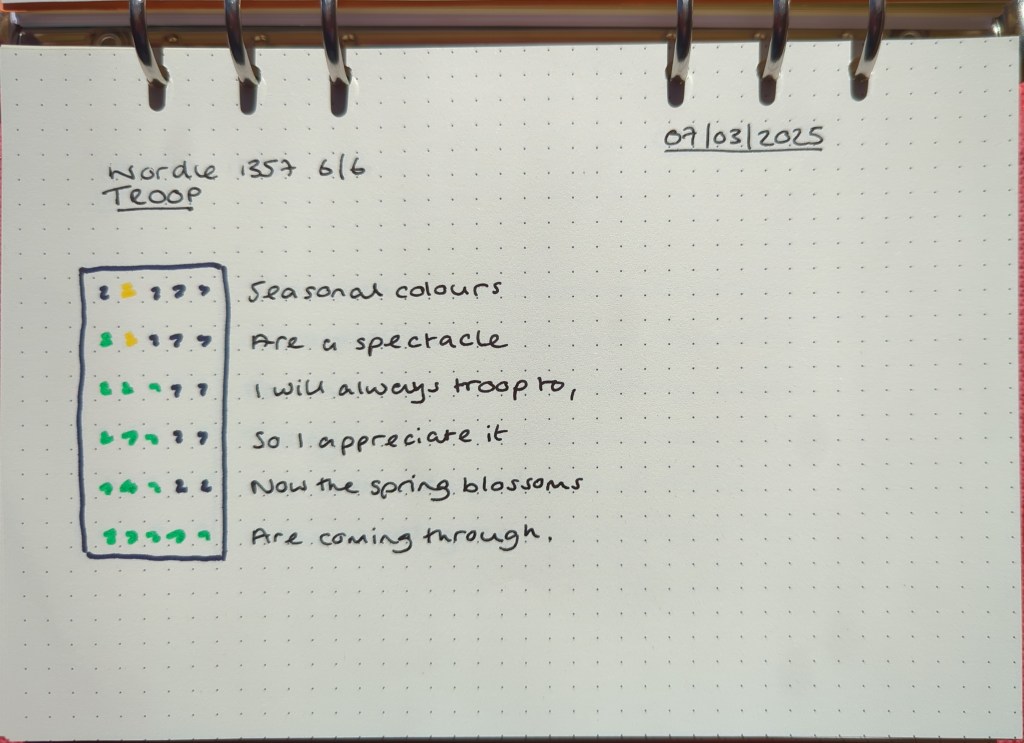 07/03/2025
Wordle 1357 6/6
TROOP
Seasonal colours
Are a spectacle
I will always troop to,
So I appreciate it
Now the spring blossoms
Are coming through.